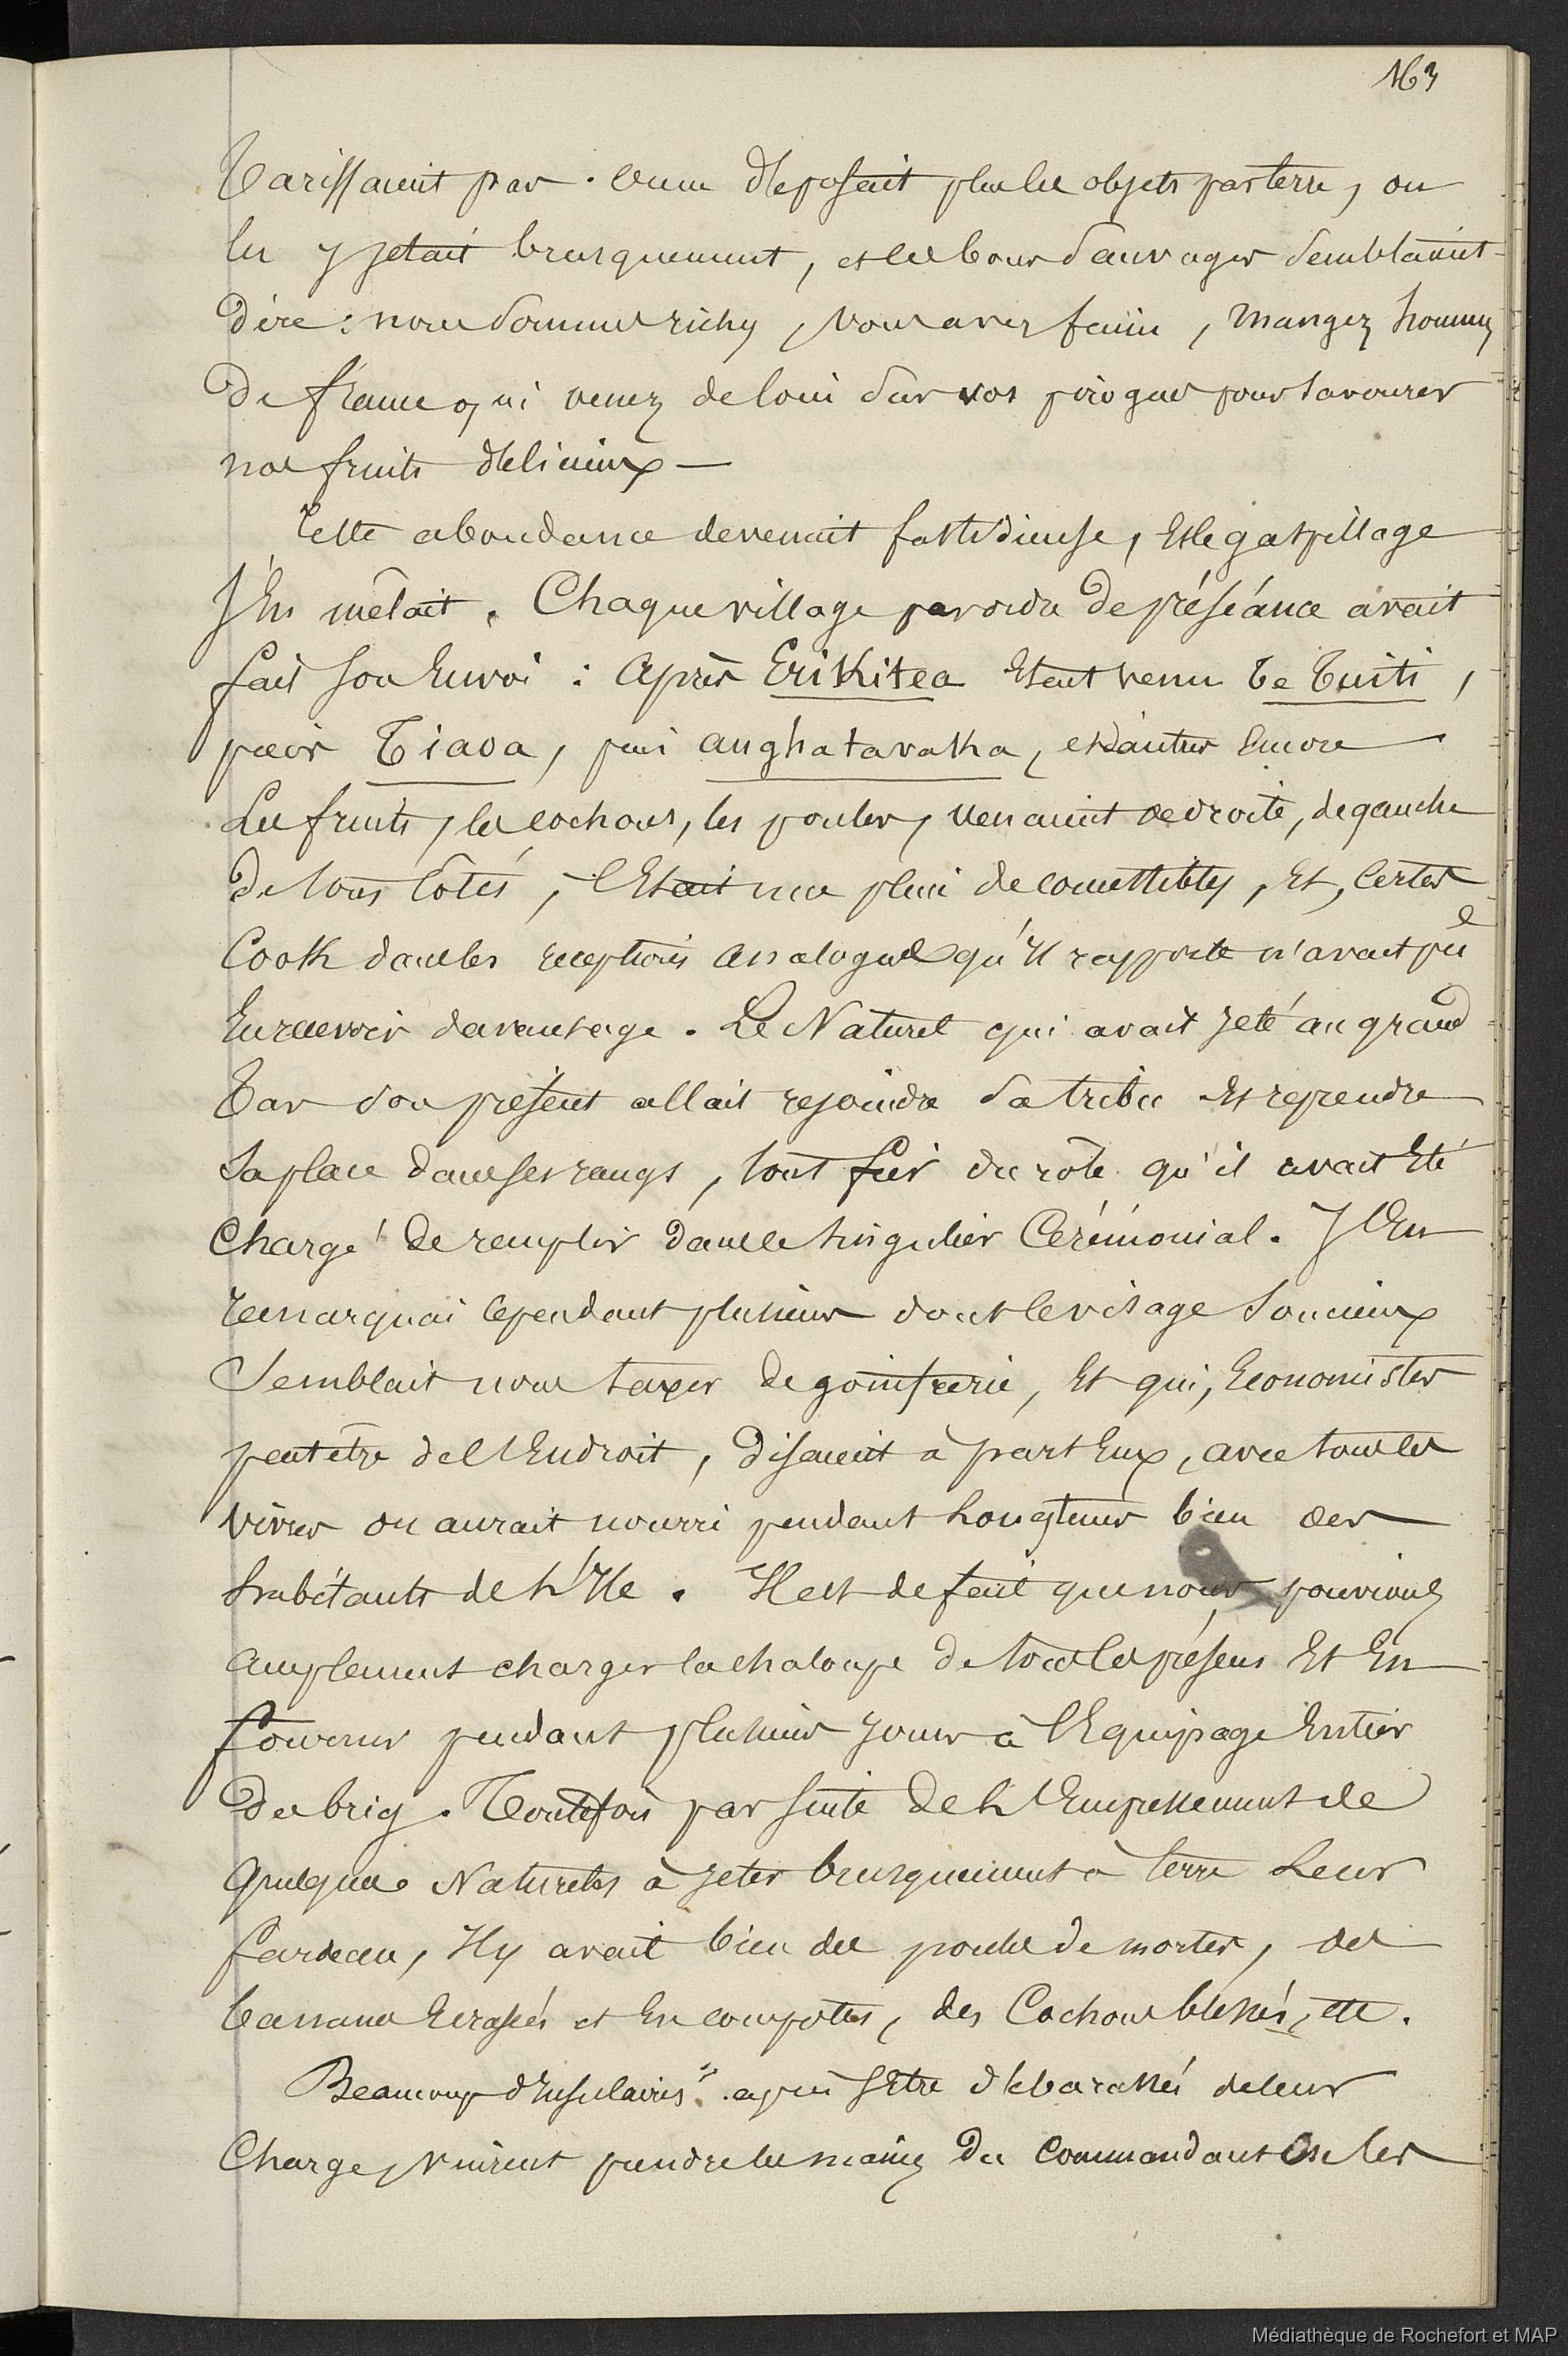 163
Tarissaient pas. On ne déposait plus les objets par terre, on
les y jetait brusquement, et les bons Sauvages Semblaient
dire : nous Sommes riches, vous avez faim, mangez hommes
de france qui venez de loin Sur vos pirogues pour Savourer
nos fruits délicieux —
Cette abondance devenait fastidieuse, Et le gaspillage
S'En mêlait. Chaque village par ordre de préséance avait
fait Son Envoi : Après Erikitea Etait venu Te Tuiti,
puis Tiaoa, puis anghatavaka, et d'autres Encore
Les fruits, les cochons, les poules, venaient de droite, de gauche
de tous Côtés, C'Etait une pluie de comestibles, Et, Certes
Cook dans les receptions analogues qu'Il rapporte n'avait pu
En recevoir davantage. Le Naturel qui avait jeté au grand
Tas Son présent allait rejoindre Sa tribu Et reprendre
Sa place dans Ses rangs, tout fier du rôle qu'il avait Eté
Chargé de remplir dans le Singulier Cérémonial. J'En
remarquai Cependant plusieurs dont le visage Soucieux
Semblait nous taxer de goinfrerie, Et qui, Economistes
peut être de l'Endroit, disaient à part Eux, avec tous les
vivres on aurait nourri pendant Longtems bien des
habitants de L'Ile. Il est de fait que nous pouvions
amplement charger la chaloupe de tous les présens Et En
fournir pendant plusieurs jours à l'Equipage Entier
du brig. Toutefois par Suite de L'Empressement de
quelques Naturels à jeter brusquement à terre Leur
fardeau, Il y avait bien des poules de mortes, des
bananes Ecrasées et En compotes, des Cochons blessés, etc.
Beaucoup d'Insulaires après S'Etre débarassés de leur
Charge, vinrent prendre les mains du Commandant On les